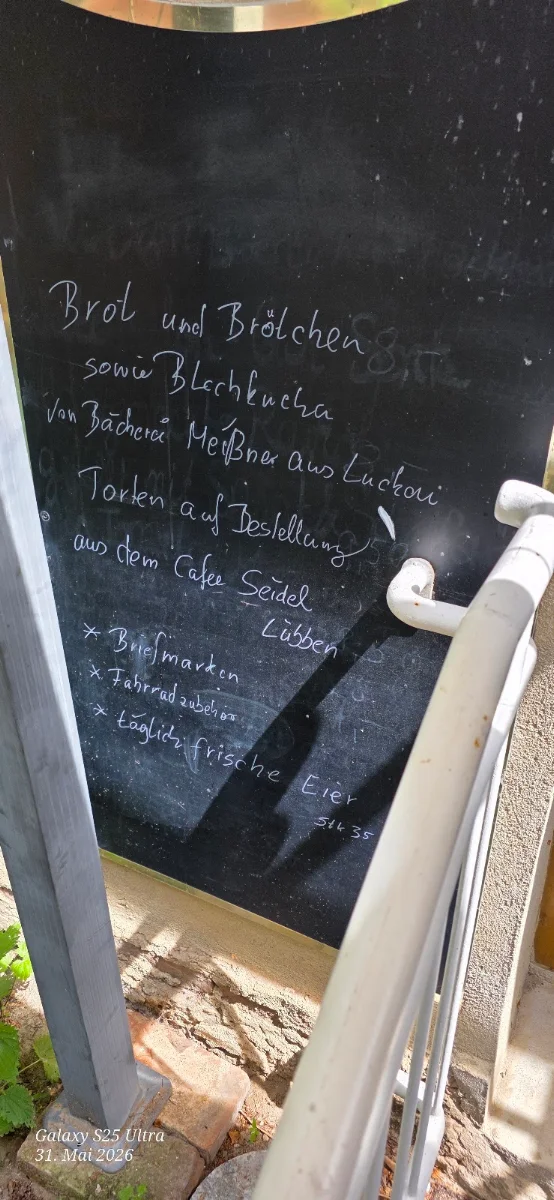 Brot und Brötchen
sowie Blechkuchen
von Bäckerei Meißner aus Luckau
Torten auf Bestellung
aus dem Cafee Seidel
Lübben
* Briefmarken
* Fahrradzubehör
* täglich frische Eier
Stk 35
Galaxy S25 Ultra
31. Mai 2026